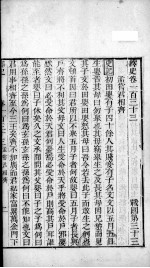 繹史卷一百二十三　戰國第二十三
孟嘗君相齊
史記初田嬰有子四十餘人其賤妾有子名文文以五月五日
生嬰告其母曰勿舉也其母竊舉生之及長其母因兄弟而見
其子文於田嬰田嬰怒其母曰吾令若去此子而敢生之何也
文頓首因曰君所以不舉五月子者何故嬰曰五月子者長與
戶齊將不利其父母文曰人生受命於天乎將受命於戶邪嬰
默然文曰必受命於天君何憂焉必受命於戶則高其戶耳誰
能至者嬰曰子休矣久之文承閒問其父嬰曰子之子為何曰
為孫孫之孫為何曰為玄孫玄孫之孫為何曰不能知也文曰
君用事相齊至今三王矣齊不加廣而君私家富累萬金門下